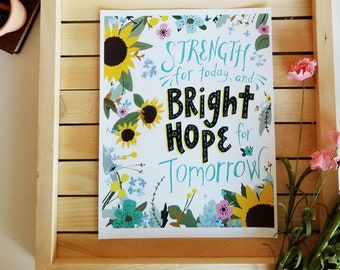 STRENGTH
for today, and
BRight
HOPE for
Tomorrow